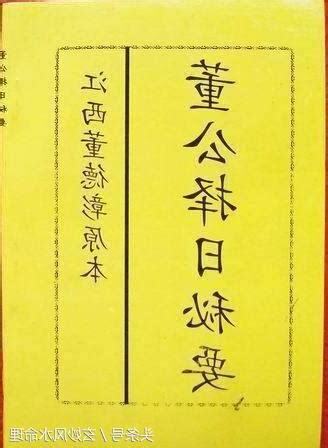 董公择日秘要
江西董德彰原本
头条号/玄妙风水命理